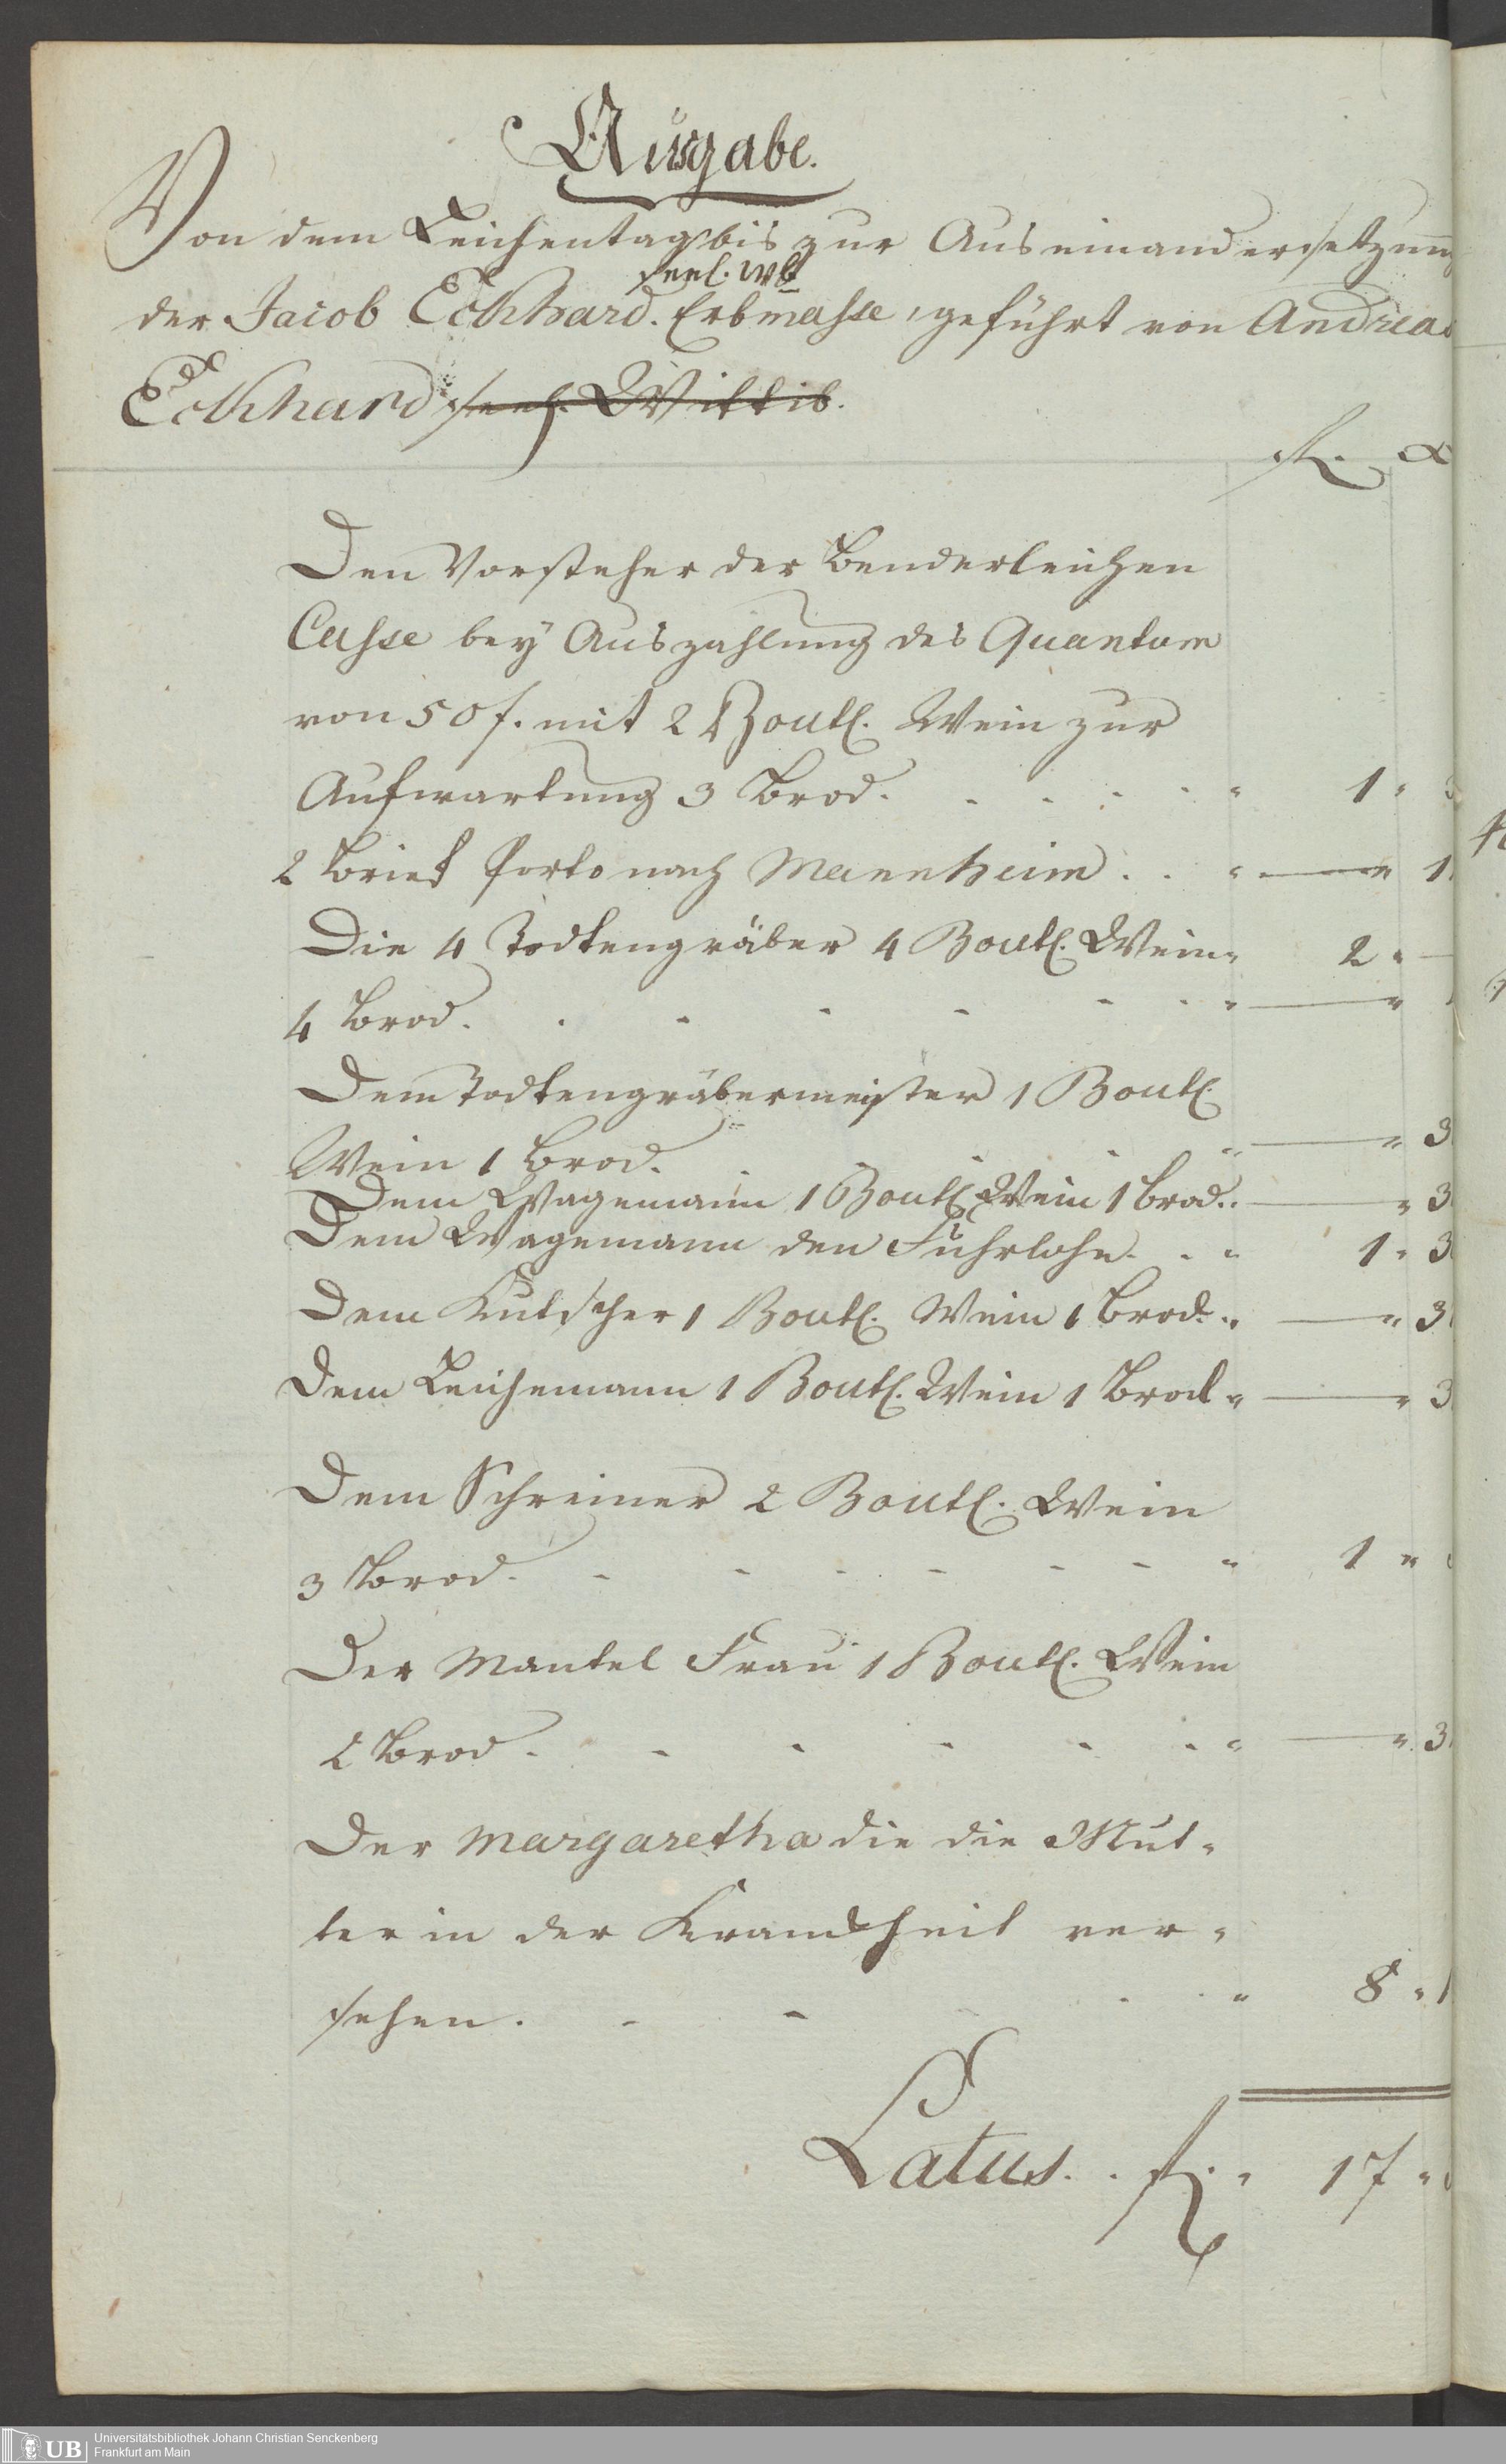 Ausgabe.
Von dem Leichentag bis zur Auseinandersetzung
seel. Wb
der Jacob Eckhard. Erbmasse, geführt von Andreas
Eckhard seel. Wittib.
fl. x
Den Vorsteher der Benderleichen
Casse bey Auszahlung des Quantum
von 50 f. mit 2 Boutl. Wein zur
Aufwartung 3 Brod. . . . . . " 1 "
2 Brief Porto nach Mannheim . . " — " 1
Die 4 Todtengräber 4 Boutl. Wein " 2 " —
4 Brod. . . . . . . " — "
Dem Todtengräbermeister 1 Boutl.
Wein 1 Brod. . . . . " — " 3
Dem Wagemann 1 Boutl. Wein 1 Brod. . — " 3
Dem Wagemann den Fuhrlohn . . " 1 " 3
Dem Kutscher 1 Boutl. Wein 1 Brod. " — " 3
Dem Leichemann 1 Boutl. Wein 1 Brod " — " 3
Dem Schreiner 2 Boutl. Wein
3 Brod. . . . . . . . " 1 "
Der Mantel Frau 1 Boutl. Wein
2 Brod. . . . . . . " — " 3
Der Margaretha die die Mut-
ter in der Kranckheit ver-
sehen. . . . . " 8 " 1
Latus. . fl. " 17 "
UB
Universitätsbibliothek Johann Christian Senckenberg
Frankfurt am Main